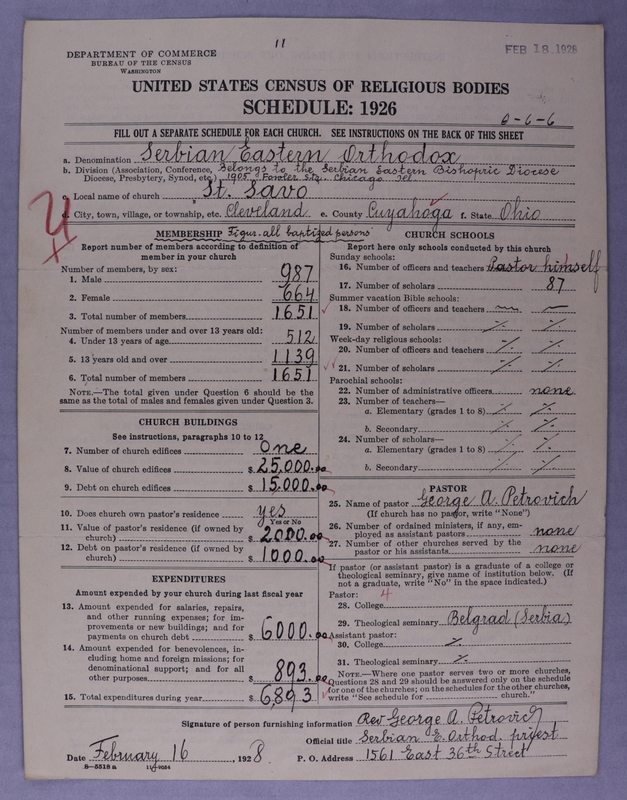 11
FEB 18 1928
DEPARTMENT OF COMMERCE
BUREAU OF THE CENSUS
WASHINGTON
UNITED STATES CENSUS OF RELIGIOUS BODIES
SCHEDULE: 1926
0-6-6
FILL OUT A SEPARATE SCHEDULE FOR EACH CHURCH. SEE INSTRUCTIONS ON THE BACK OF THIS SHEET
a. Denomination Serbian Eastern Orthodox
b. Division (Association, Conference, Belongs to the Serbian Eastern Bishopric Diocese
Diocese, Presbytery, Synod, etc.) 1905 Fowler Str. Chicago Ill
c. Local name of church St. Savo
d. City, town, village, or township, etc. Cleveland e. County Cuyahoga f. State Ohio
MEMBERSHIP Figur. all baptized persons
Report number of members according to definition of
member in your church
Number of members, by sex:
1. Male 987
2. Female 664
3. Total number of members 1651
Number of members under and over 13 years old:
4. Under 13 years of age 512
5. 13 years old and over 1139
6. Total number of members 1651
NOTE.—The total given under Question 6 should be
same as the total of males and females given under Question 3.
CHURCH BUILDINGS
See instructions, paragraphs 10 to 12
7. Number of church edifices One
8. Value of church edifices $25,000.00
9. Debt on church edifices $15,000.00
10. Does church own pastor's residence yes
Yes or No
11. Value of pastor's residence (if owned by
church) $2000.00
12. Debt on pastor's residence (if owned by
church) $1000.00
EXPENDITURES
Amount expended by your church during last fiscal year
13. Amount expended for salaries, repairs,
and other running expenses; for im-
provements or new buildings; and for
payments on church debt $6000.00
14. Amount expended for benevolences, in-
cluding home and foreign missions; for
denominational support; and for all
other purposes $893.00
15. Total expenditures during year $6,893
CHURCH SCHOOLS
Report here only schools conducted by this church
Sunday schools:
16. Number of officers and teachers Pastor himself
17. Number of scholars 87
Summer vacation Bible schools:
18. Number of officers and teachers
19. Number of scholars
Week-day religious schools:
20. Number of officers and teachers
21. Number of scholars
Parochial schools:
22. Number of administrative officers none
23. Number of teachers—
a. Elementary (grades 1 to 8)
b. Secondary
24. Number of scholars—
a. Elementary (grades 1 to 8)
b. Secondary
PASTOR
25. Name of pastor George A. Petrovich
(If church has no pastor, write "None")
26. Number of ordained ministers, if any, em-
ployed as assistant pastors none
27. Number of other churches served by the
pastor or his assistants none
If pastor (or assistant pastor) is a graduate of a college or
theological seminary, give name of institution below. (If
not a graduate, write "No" in the space indicated.)
Pastor: 4
28. College
29. Theological seminary Belgrad (Serbia)
Assistant pastor:
30. College
31. Theological seminary
NOTE.—Where one pastor serves two or more churches,
Questions 28 and 29 should be answered only on the schedule
for one of the churches; on the schedules for the other churches,
write "See schedule for church."
Signature of person furnishing information Rev George A. Petrovich
Official title Serbian E. Orthod. priest
Date February 16, 1928 P. O. Address 1561 East 36th Street
8-5518 a